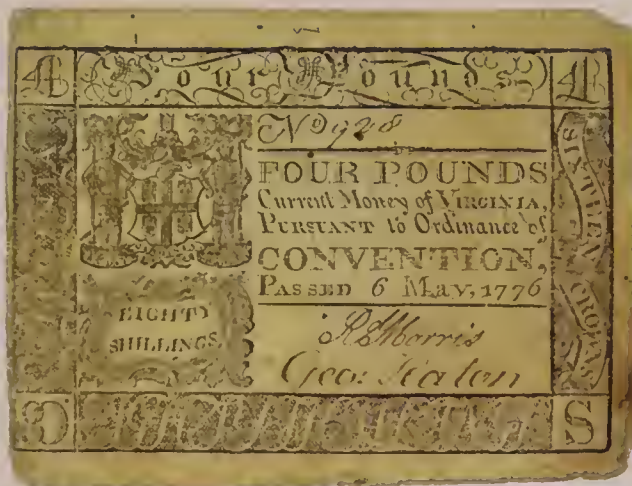 4 Four Pounds 4
No 928
FOUR POUNDS
Current Money of VIRGINIA,
PURSUANT to Ordinance of
CONVENTION,
PASSED 6 May, 1776
EIGHTY
SHILLINGS.
SIXTEEN CROWNS
Morris
Geo: Seaton
D S